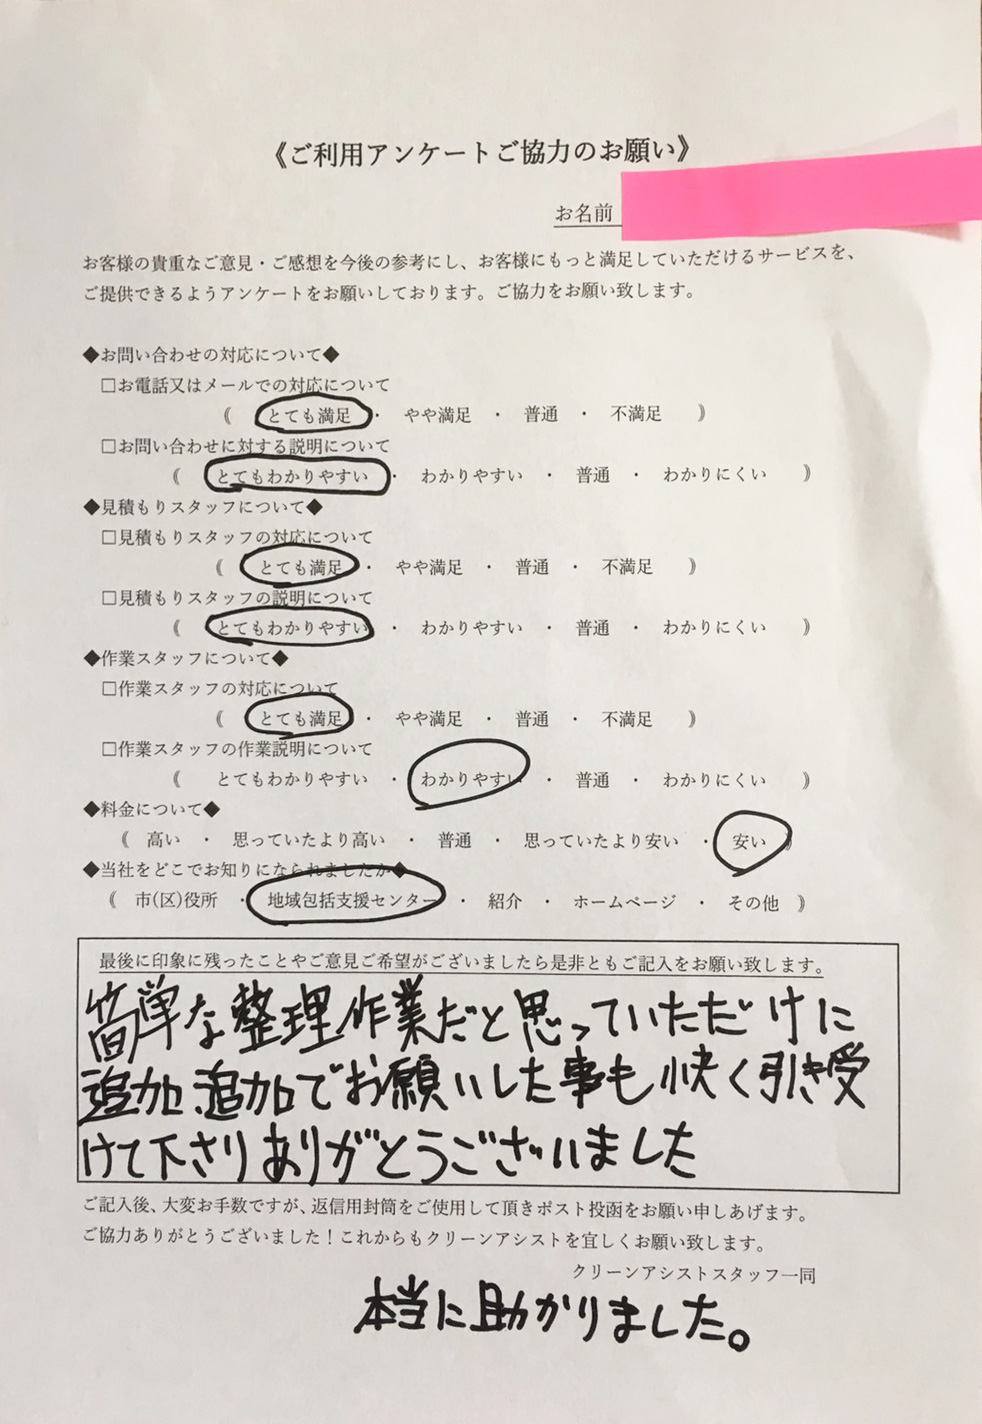 《ご利用アンケートご協力のお願い》
お名前
お客様の貴重なご意見・ご感想を今後の参考にし、お客様にもっと満足していただけるサービスを、
ご提供できるようアンケートをお願いしております。ご協力をお願い致します。
◆お問い合わせの対応について◆
□お電話又はメールでの対応について
《 とても満足 ・ やや満足 ・ 普通 ・ 不満足 》
□お問い合わせに対する説明について
《 とてもわかりやすい ・ わかりやすい ・ 普通 ・ わかりにくい 》
◆見積もりスタッフについて◆
□見積もりスタッフの対応について
《 とても満足 ・ やや満足 ・ 普通 ・ 不満足 》
□見積もりスタッフの説明について
《 とてもわかりやすい ・ わかりやすい ・ 普通 ・ わかりにくい 》
◆作業スタッフについて◆
□作業スタッフの対応について
《 とても満足 ・ やや満足 ・ 普通 ・ 不満足 》
□作業スタッフの作業説明について
《 とてもわかりやすい ・ わかりやすい ・ 普通 ・ わかりにくい 》
◆料金について◆
《 高い ・ 思っていたより高い ・ 普通 ・ 思っていたより安い ・ 安い 》
◆当社をどこでお知りになられましたか◆
《 市(区)役所 ・ 地域包括支援センター ・ 紹介 ・ ホームページ ・ その他 》
最後に印象に残ったことやご意見ご希望がございましたら是非ともご記入をお願い致します。
簡単な整理作業だと思っていただけに
追加追加でお願いした事も快く引き受
けて下さりありがとうございました
ご記入後、大変お手数ですが、返信用封筒をご使用して頂きポスト投函をお願い申しあげます。
ご協力ありがとうございました！これからもクリーンアシストを宜しくお願い致します。
クリーンアシストスタッフ一同
本当に助かりました。